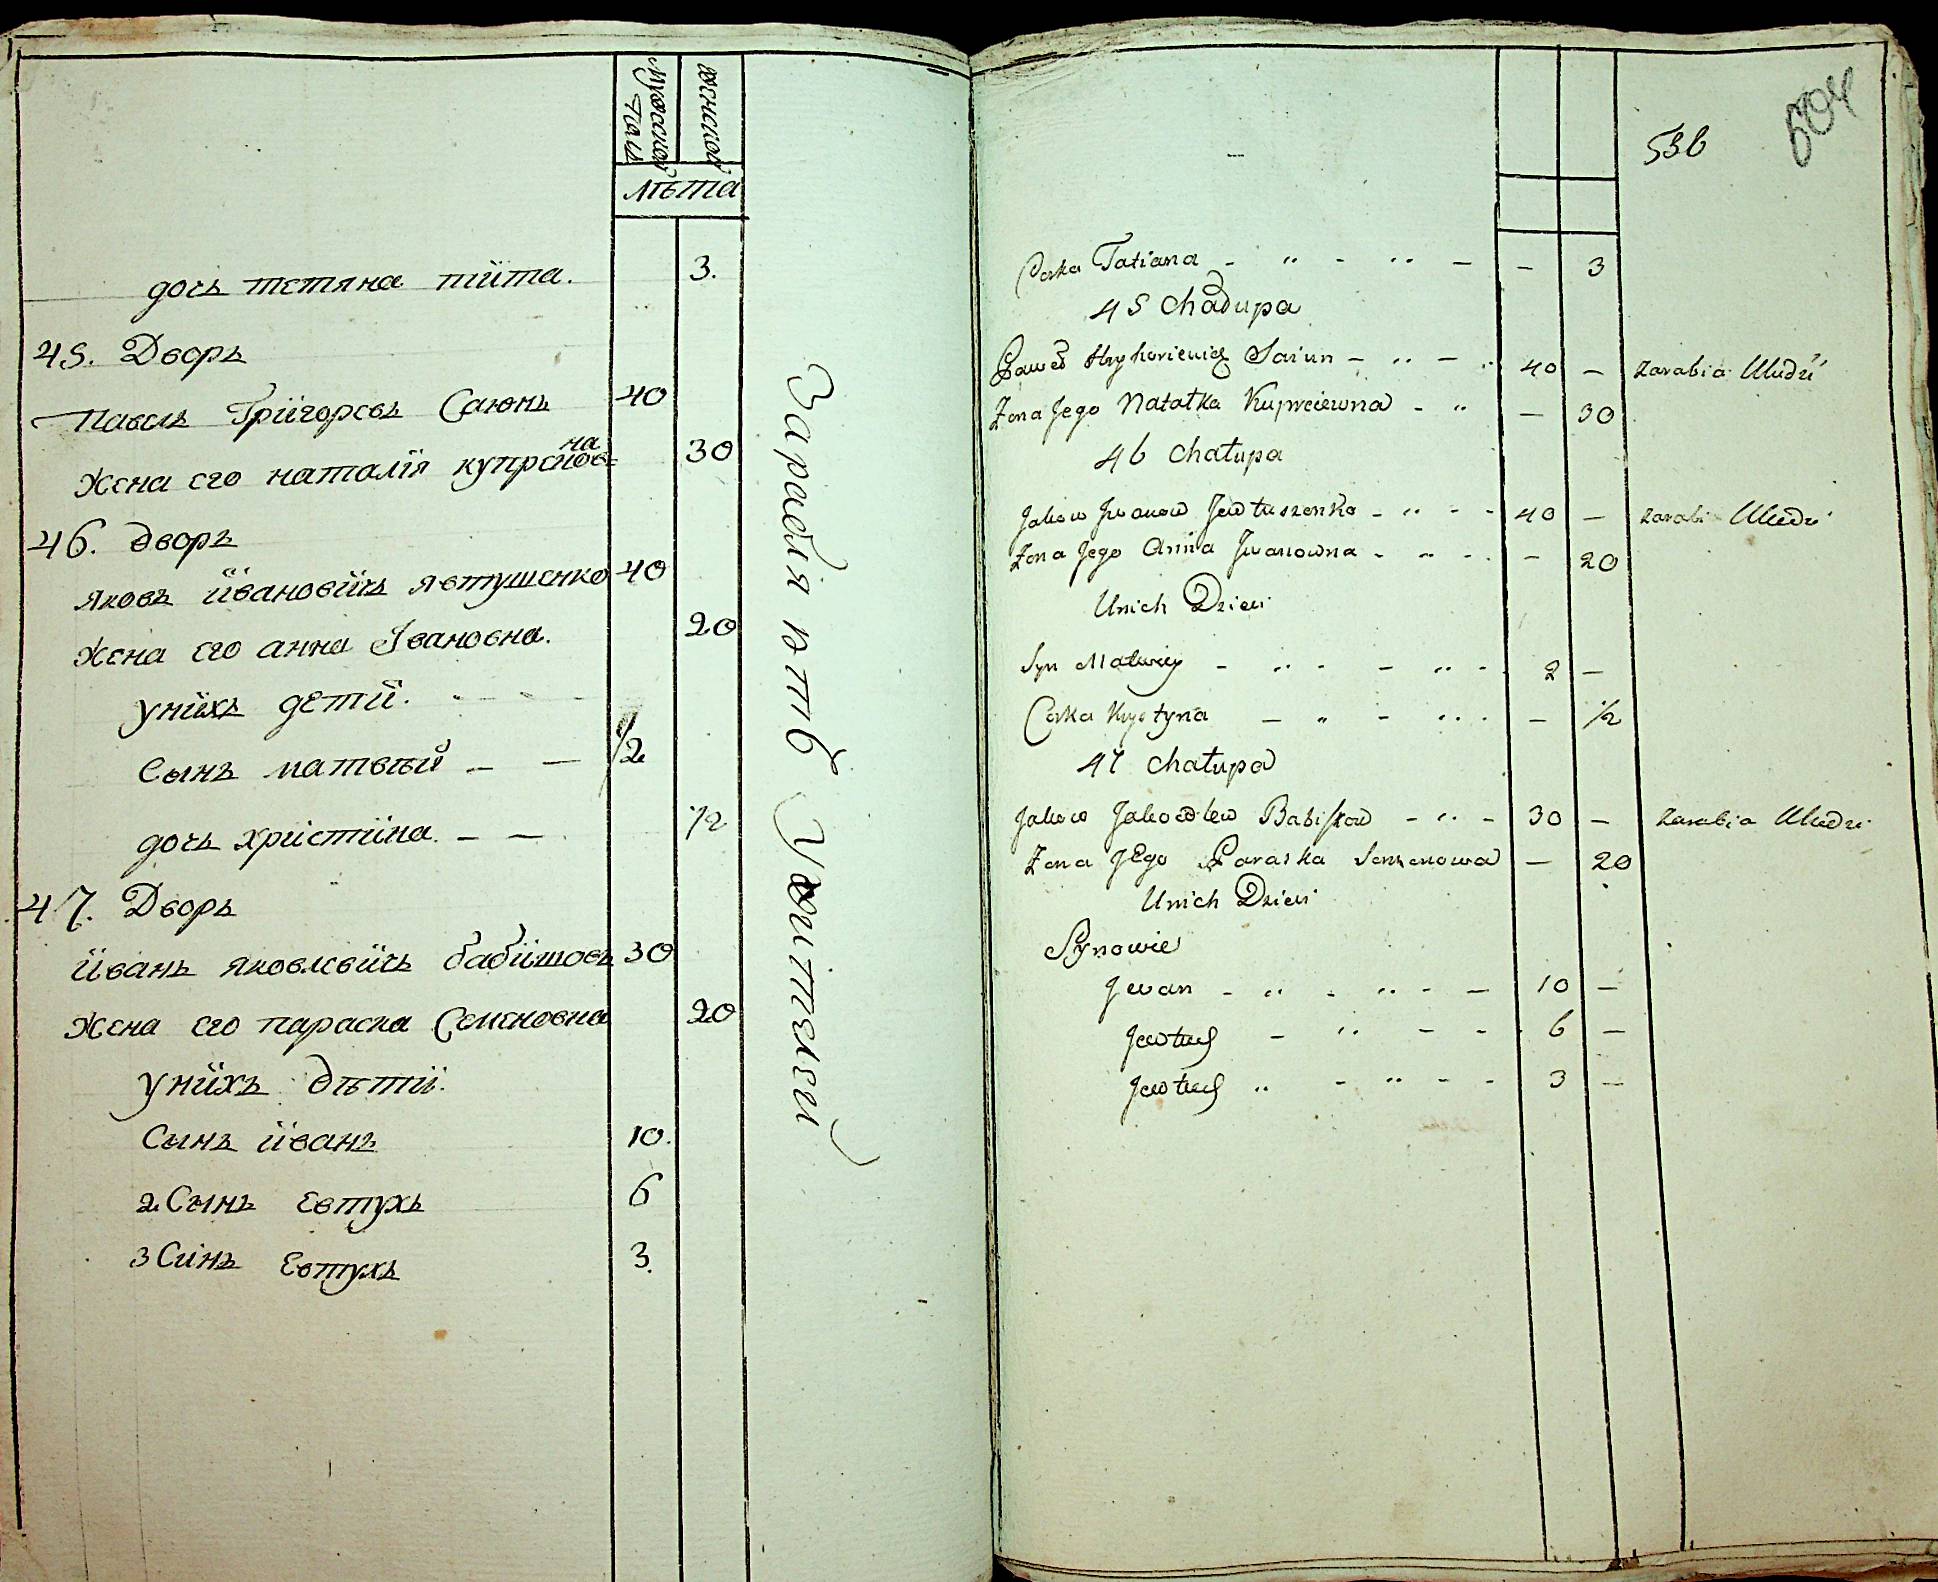 мужской
полъ
женской
лѣта
дочь тетяна тіита. 3.
45. Дворъ
Павелъ Григоревъ Саюнъ 40
Жена его наталія купренов=
на 30
46. дворъ
Яковъ ӥвановӥчь явтушенко 40
Жена его анна Івановна. 20
унӥхъ детӥ.
Сынъ матвѣй — — 1/2
дочь христӥна. — — 1/2
47. Дворъ
ӥванъ яковлевӥчь бабӥшовъ 30
Жена его параска Семеновна 20
унӥхъ дѣтӥ.
Сынъ ӥванъ 10.
2 Сынъ Евтухъ 6
3 Синъ Евтухъ 3.
Зарабляютъ
536
504
Corka Tatiana - „ - „ - — 3
45 Chadupa
Paweł Hryhoriewicz Saiun - „ - „ 40 — zarabia
Zona Jego Natalka Kuprciewna - „ — 30
46 Chałupa
Jakow Jwanow Jewtuszenko - „ - - 40 —
Zona Jego Anna Jwanowna - „ - — 20
Unich Dzieci
Syn Matwiey - „ - - „ - 2 —
Corka Krystyna — „ - „ . — 1/2
47 Chałupa
Jakow Jakowlew Babiszow - „ - 30 — zarabia
Zona JEgo Paraska Semenowa — 20
Unich Dzieci
Synowie
Jwan - „ - „ - — 10 —
Jewtuch - „ - - 6 —
Jewtuch „ - „ - - 3 —